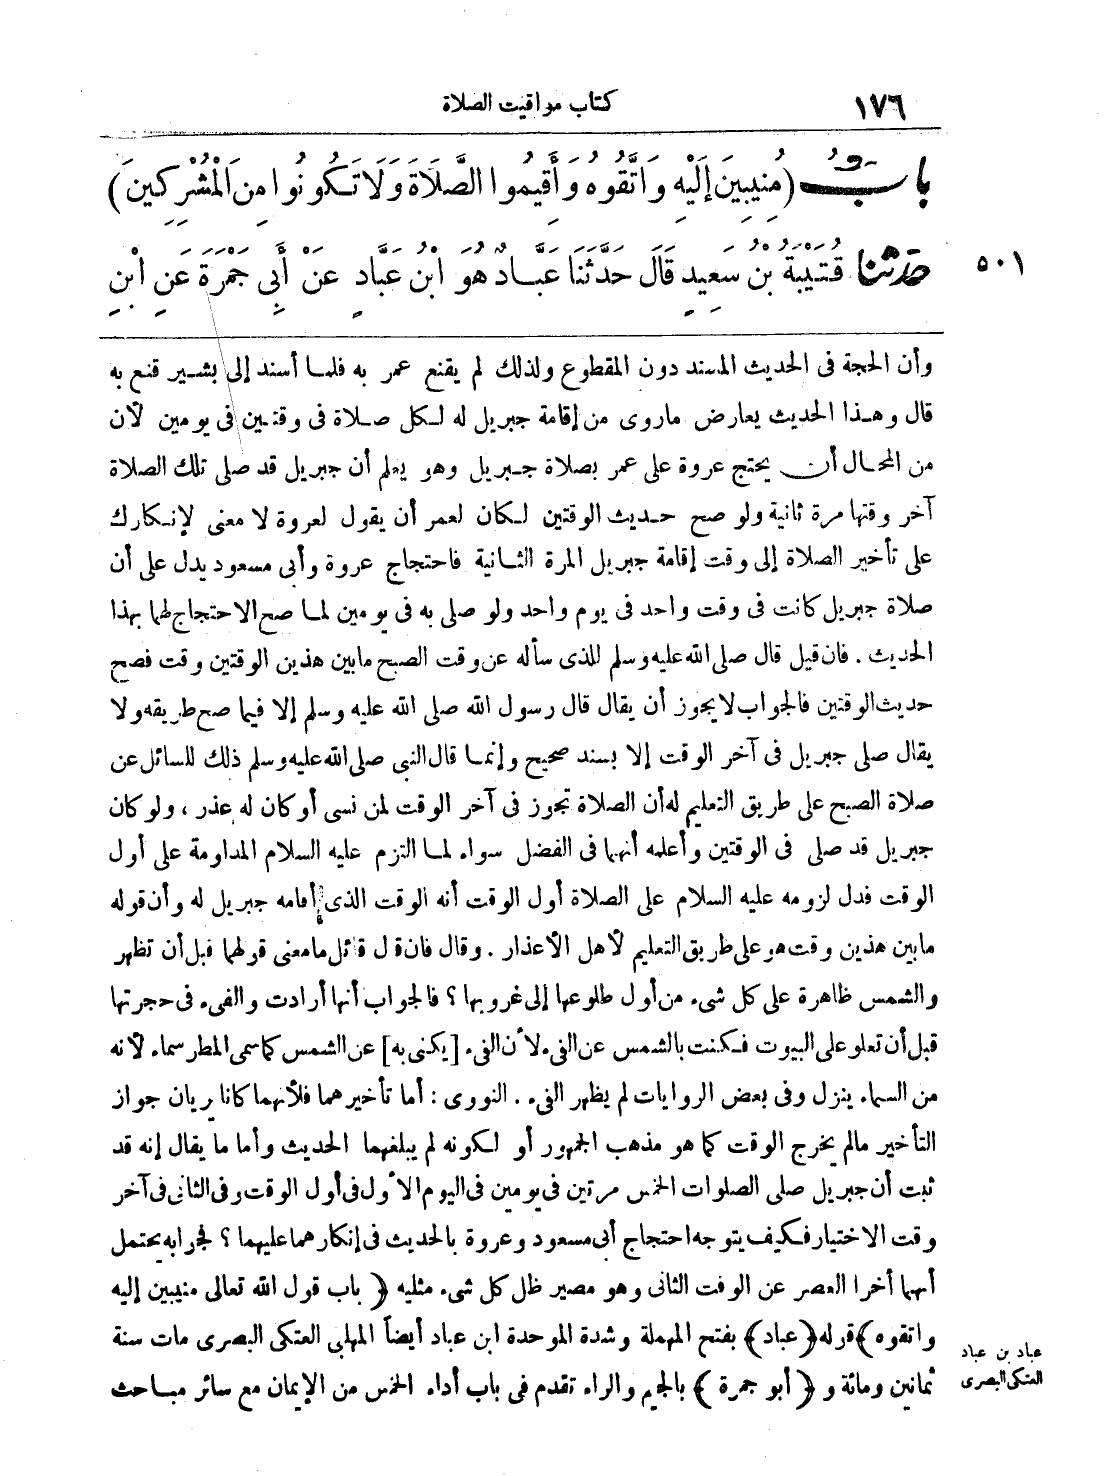 ١٧٦ كتاب مواقيت الصلاة
بابٌ (مُنِيبِينَ إِلَيْهِ وَاتَّقُوهُ وَأَقِيمُوا الصَّلَاةَ وَلَا تَكُونُوا مِنَ الْمُشْرِكِينَ)
٥٠١ حَدَّثَنَا قُتَيْبَةُ بْنُ سَعِيدٍ قَالَ حَدَّثَنَا عَبَّادٌ هُوَ ابْنُ عَبَّادٍ عَنْ أَبِي جَمْرَةَ عَنِ ابْنِ
وأن الحجة فى الحديث المسند دون المقطوع ولذلك لم يقنع عمر به فلما أسند إلى بشير قنع به
قال وهذا الحديث يعارض ماروى من إقامة جبريل له لكل صلاة فى وقتين فى يومين لأن
من المحال أن يحتج عروة على عمر بصلاة جبريل وهو يعلم أن جبريل قد صلى تلك الصلاة
آخر وقتها مرة ثانية ولو صح حديث الوقتين لكان لعمر أن يقول لعروة لا معنى لإنكارك
على تأخير الصلاة إلى وقت إقامة جبريل المرة الثانية فاحتجاج عروة وأبى مسعود يدل على أن
صلاة جبريل كانت فى وقت واحد فى يوم واحد ولو صلى به فى يومين لما صح الاحتجاج لهما بهذا
الحديث . فان قيل قال صلى الله عليه وسلم للذى سأله عن وقت الصبح مابين هذين الوقتين وقت فصح
حديث الوقتين فالجواب لا يجوز أن يقال قال رسول الله صلى الله عليه وسلم إلا فيما صح طريقه ولا
يقال صلى جبريل فى آخر الوقت إلا بسند صحيح وإنما قال النبى صلى الله عليه وسلم ذلك للسائل عن
صلاة الصبح على طريق التعليم له أن الصلاة تجوز فى آخر الوقت لمن نسى أو كان له عذر ، ولو كان
جبريل قد صلى فى الوقتين وأعلمه أنهما فى الفضل سواء لما التزم عليه السلام المداومة على أول
الوقت فدل لزومه عليه السلام على الصلاة أول الوقت أنه الوقت الذى أقامه جبريل له وأن قوله
مابين هذين وقت هو على طريق التعليم لأهل الأعذار . وقال فان قال قائل ما معنى قولها قبل أن تظهر
والشمس ظاهرة على كل شىء من أول طلوعها إلى غروبها ؟ فالجواب أنها أرادت والفىء فى حجرتها
قبل أن تعلو على البيوت فكنت بالشمس عن الفىء لأن الفىء [يكنى به] عن الشمس كما سمى المطر سماء لأنه
من السماء ينزل وفى بعض الروايات لم يظهر الفىء . النووى : أما تأخيرهما فلأنهما كانا يريان جواز
التأخير مالم يخرج الوقت كما هو مذهب الجمهور أو لكونه لم يبلغهما الحديث وأما ما يقال إنه قد
ثبت أن جبريل صلى الصلوات الخمس مرتين فى يومين فى اليوم الأول فى أول الوقت وفى الثانى فى آخر
وقت الاختيار فكيف يتوجه احتجاج أبى مسعود وعروة بالحديث فى إنكارهما عليهما ؟ فجوابه يحتمل
أنهما أخرا العصر عن الوقت الثانى وهو مصير ظل كل شىء مثليه ﴿ باب قول الله تعالى منيبين إليه
واتقوه ﴾ قوله ﴿ عباد ﴾ بفتح المهملة وشدة الموحدة ابن عباد أيضاً المهلبى العتكى البصرى مات سنة
ثمانين ومائة و ﴿ أبو جمرة ﴾ بالجيم والراء تقدم فى باب أداء الخمس من الإيمان مع سائر مباحث
عباد بن عباد
العتكى البصرى